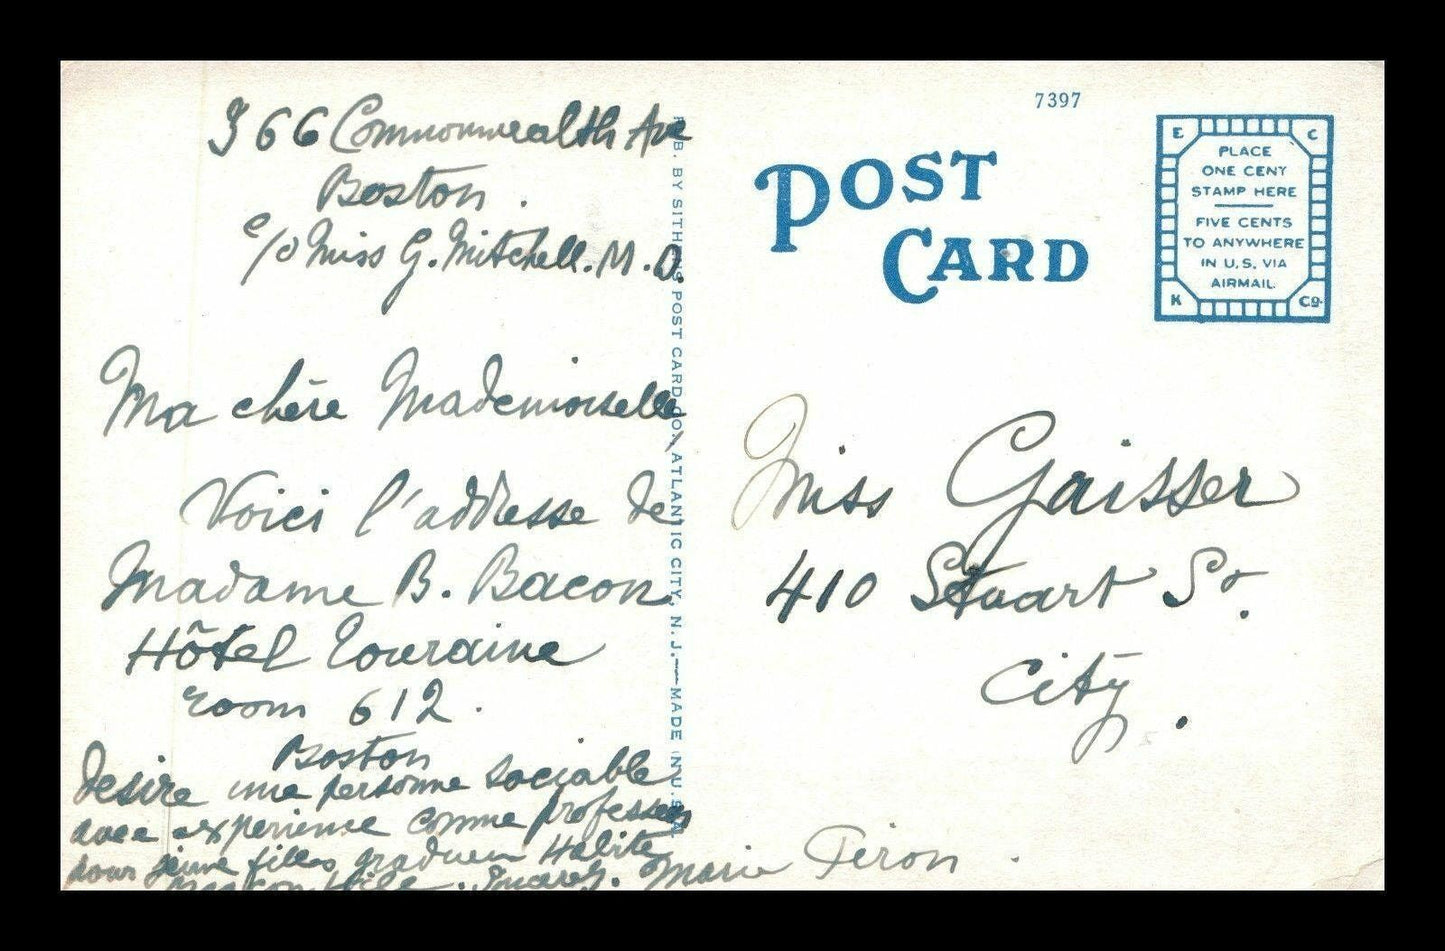 366 Commonwealth Ave
Boston.
c/o Miss G. Mitchell. M.D.
Ma chère Mademoiselle,
Voici l'addresse de
Madame B. Bacon
Hôtel Touraine
room 612.
Boston
desire une personne sociable
avec experience comme professeur
pour jeune filles Habite
Marie Peron.
PUB. BY SITHENS POST CARD CO., ATLANTIC CITY, N. J.—MADE IN U.S.A.
7397
POST
CARD
E C
PLACE
ONE CENT
STAMP HERE
FIVE CENTS
TO ANYWHERE
IN U.S. VIA
AIRMAIL
K CO.
Miss Gaisser
410 Stuart St.
City.